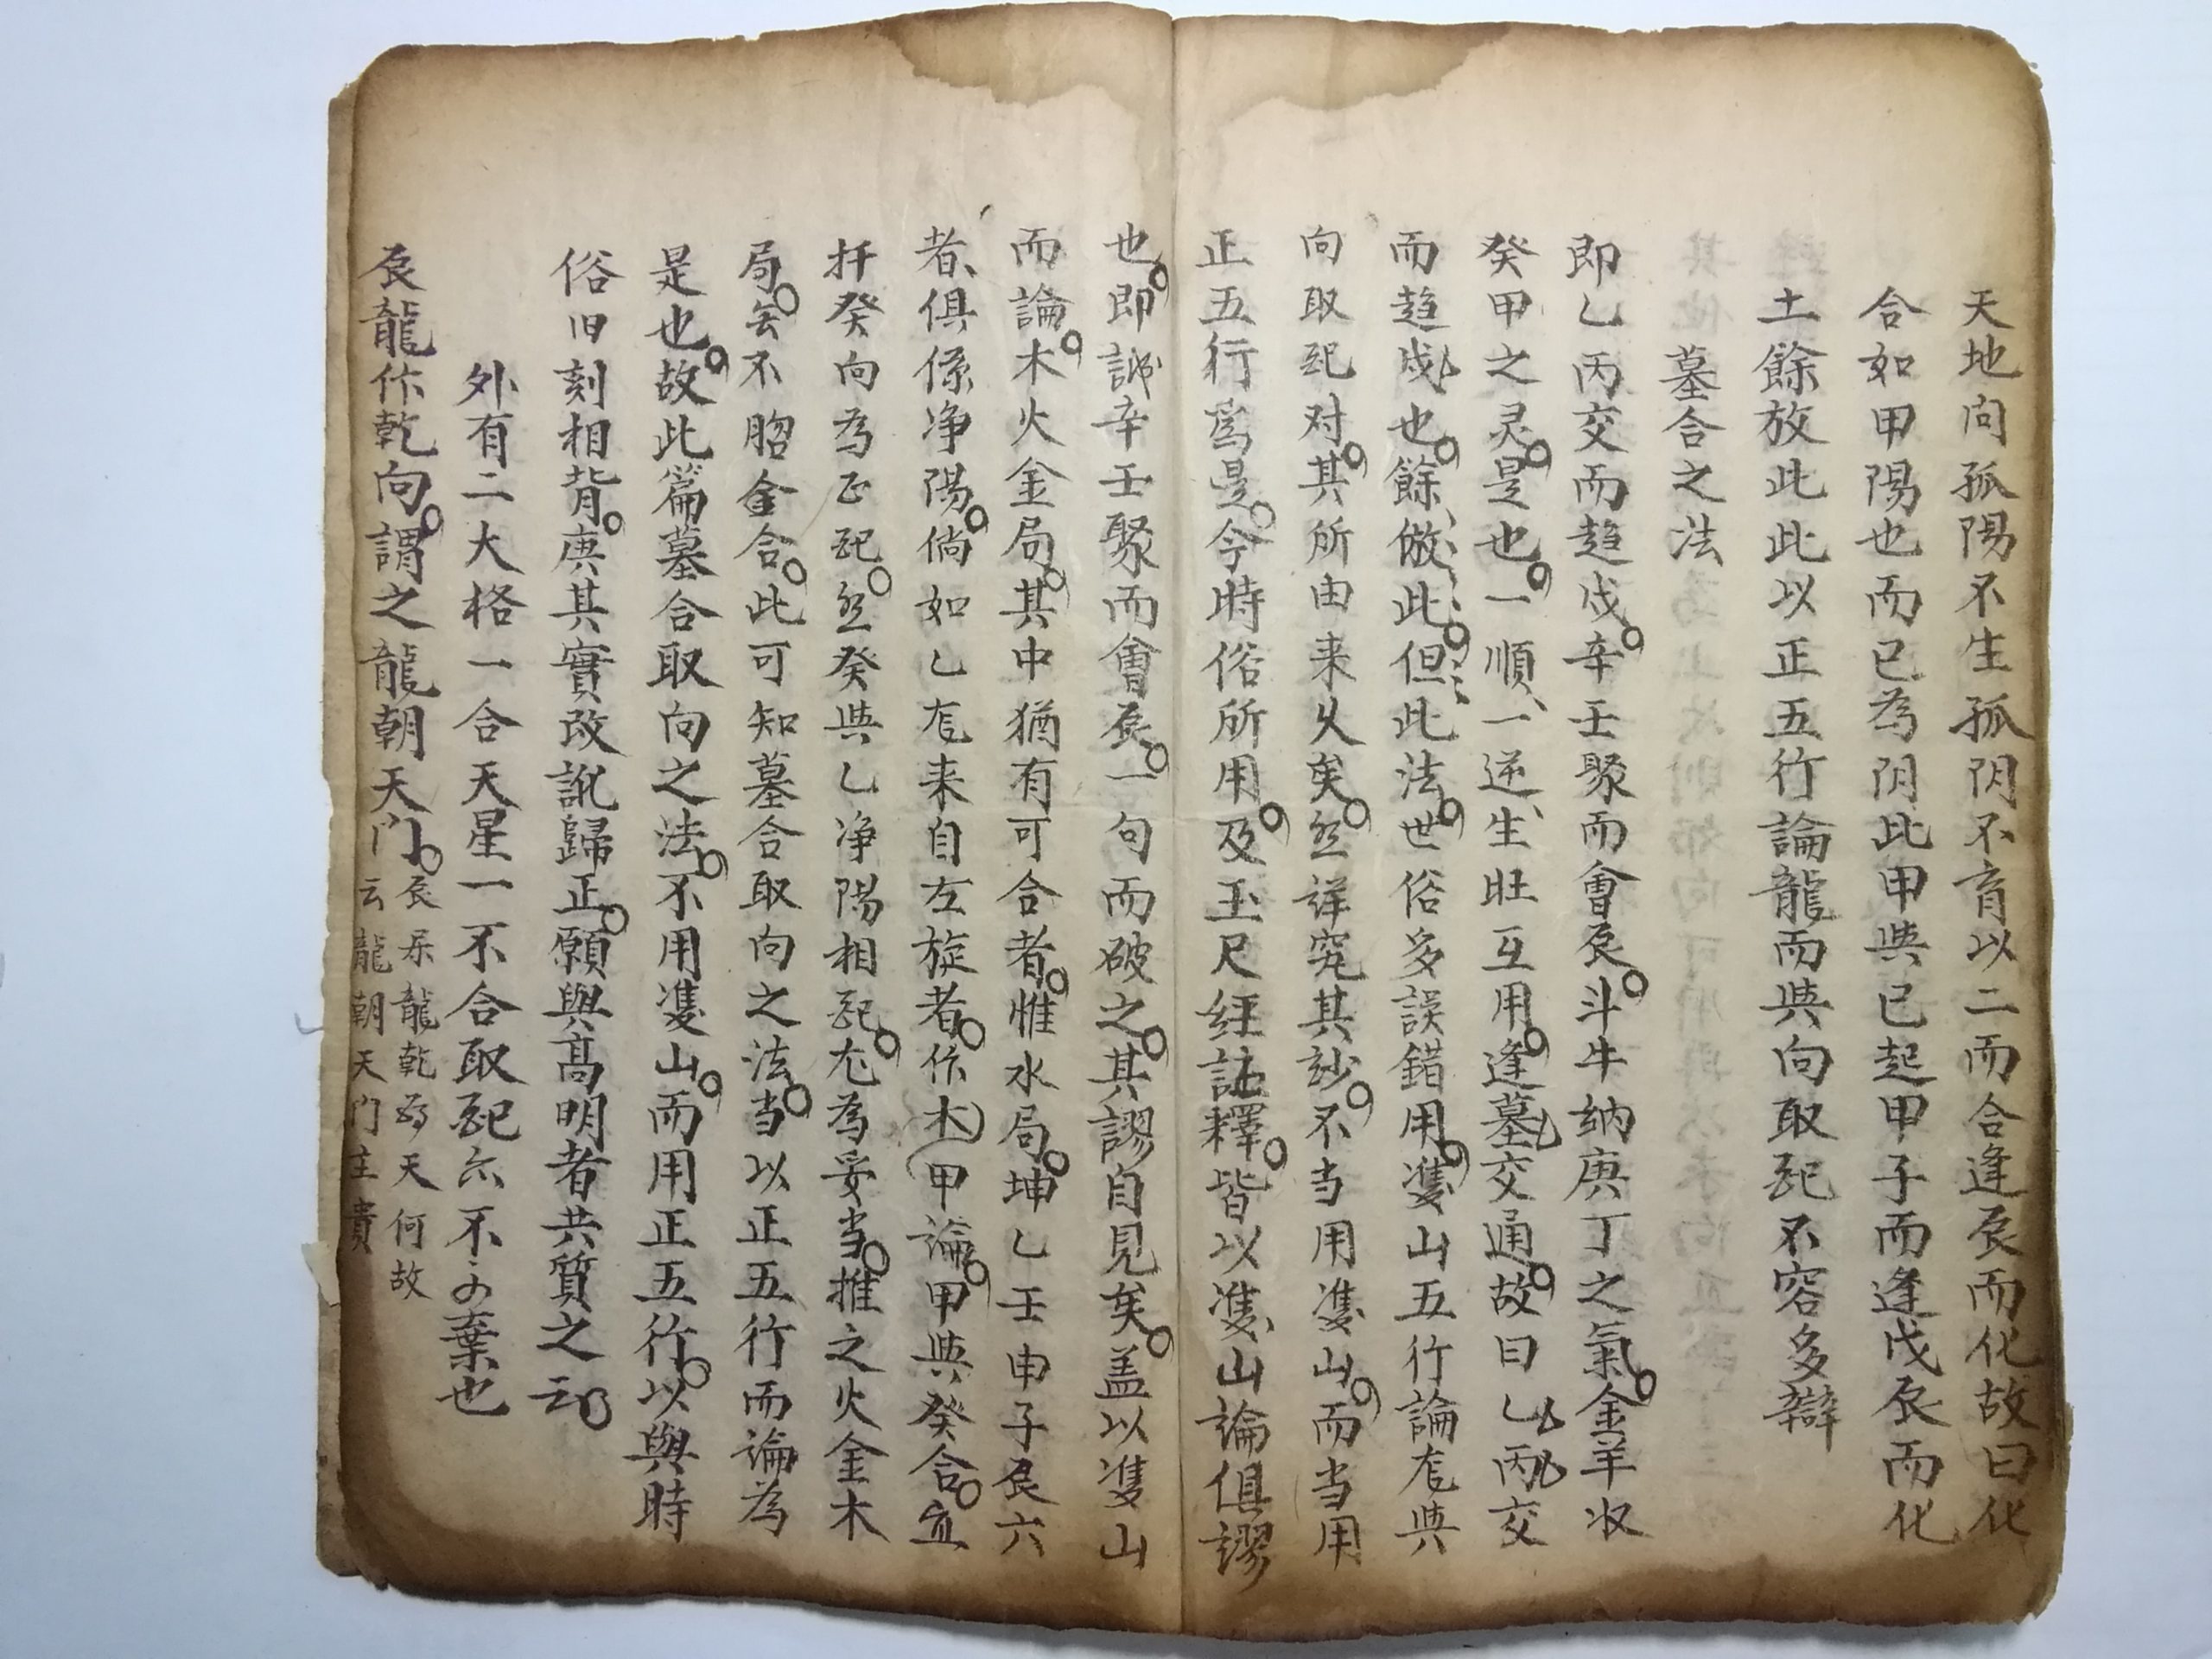 天地向孤陽不生孤阴不育以二而合逢辰而化故曰化
合如甲陽也而已為阴此甲與已起甲子而逢戊辰而化
土餘放此此以正五行論龍而與向取配不容多辯
墓合之法
即乙丙交而趋戍辛壬聚而會辰斗牛纳庚丁之氣金羊收
癸甲之灵是也一順一逆生旺互用逢墓交通故曰乙丙交
而趋戍也餘倣此但此法世俗多誤錯用䨇山五行論龙與
向取配对其所由来火矣然詳究其玅不当用䨇山而当用
正五行為是今時俗所用及玉尺経註釋皆以䨇山論俱謬
也即誠辛壬聚而會辰一句而破之其謬自見矣盖以䨇山
而論木火金局其中猶有可合者惟水局坤乙壬申子辰六
者俱係净陽倘如乙龙来自左旋者作木甲論甲與癸合宜
扦癸向為正配然癸與乙净陽相配尤為妥当推之火金木
局無不脗合此可知墓合取向之法当以正五行而論為
是也故此篇墓合取向之法不用䨇山而用正五行以與時
俗旧刻相背庚其實改訛歸正願與高明者共質之云
外有二大格一合天星一不合取配亦不可棄也
辰龍作乾向謂之龍朝天门
辰屎龍乾為天何故
云龍朝天门主貴